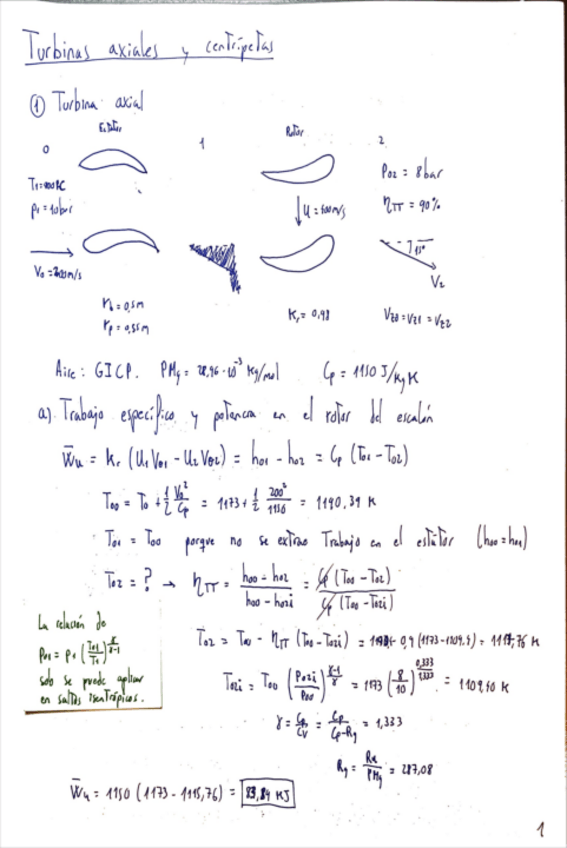 Turbinas axiales y centrípetas
① Turbina axial
Estátor
Rotor
0
1
2
P02 = 8bar
p1 = 10bar
U = 500m/s
ηTT = 90%
15°
V2
V0 = 200m/s
rb = 0,5m
rp = 0,55m
Kr = 0,98
Vz0 = Vz1 = Vz2
Aire: GICP. PMg = 28,96·10⁻³ Kg/mol Cp = 1150 J/KgK
a) Trabajo específico y potencia en el rotor del escalón
W̄u = Kr (U1 Vθ1 - U2 Vθ2) = h01 - h02 = Cp (T01 - T02)
T00 = T0 + 1/2 V0²/Cp = 1173 + 1/2 200²/1150 = 1190,39 K
T01 = T00 porque no se extrae Trabajo en el estátor (h00 = h01)
T02 = ? → ηTT = (h00 - h02)/(h00 - h02i) = Cp (T00 - T02)/Cp (T00 - T02i)
La relación de
P01 = P1 (T01/T1)^(γ/γ-1)
solo se puede aplicar
en saltos isentrópicos.
T02i = T00 (P02i/P00)^(γ-1/γ) = 1173 (8/10)^(0,333/1,333) = 1109,40 K
γ = Cp/Cv = Cp/(Cp-Rg) = 1,333
Rg = Ru/PMg = 287,08
W̄u = 1150 (1173 - 1115,76) =
1